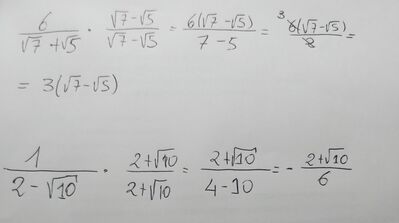 6/(√7+√5) · (√7-√5)/(√7-√5) = 6(√7-√5)/(7-5) = ³6(√7-√5)/2 =
= 3(√7-√5)
1/(2-√10) · (2+√10)/(2+√10) = (2+√10)/(4-10) = -(2+√10)/6